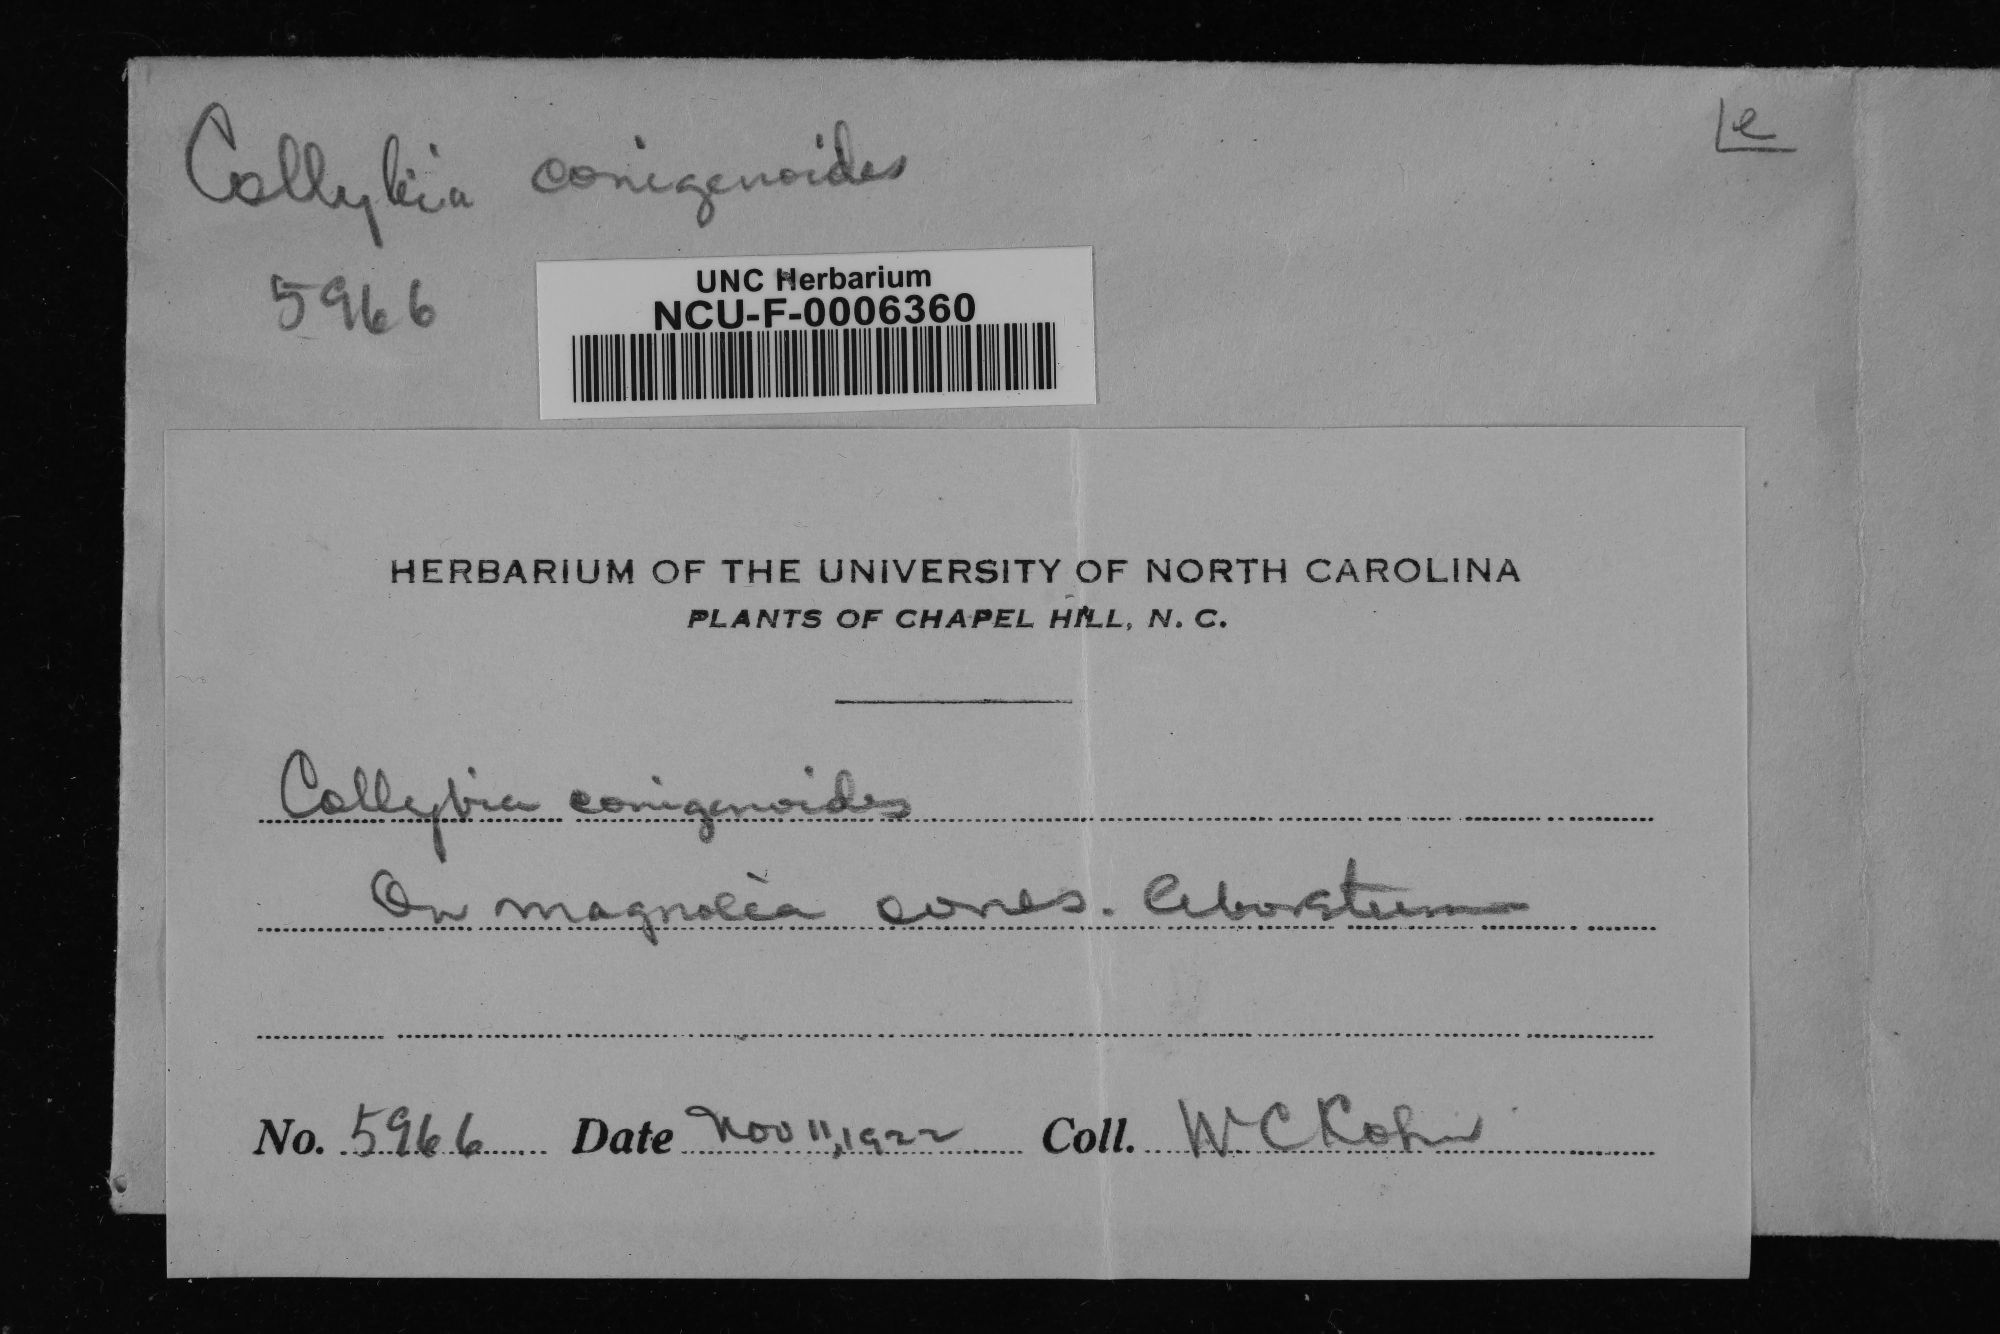 Collybia conigenoides
le
5966
UNC Herbarium
NCU-F-0006360
HERBARIUM OF THE UNIVERSITY OF NORTH CAROLINA
PLANTS OF CHAPEL HILL, N. C.
Collybia conigenoides
On magnolia cones. Arboretum
No. 5966 Date Nov 11, 1922 Coll. W C